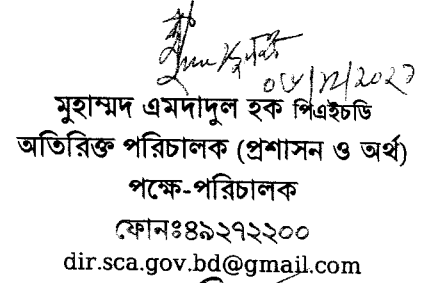 ০৬/১২/২০২৩
মুহাম্মদ এমদাদুল হক পিএইচডি
অতিরিক্ত পরিচালক (প্রশাসন ও অর্থ)
পক্ষে-পরিচালক
ফোনঃ৪৯২৭২২০০
dir.sca.gov.bd@gmail.com